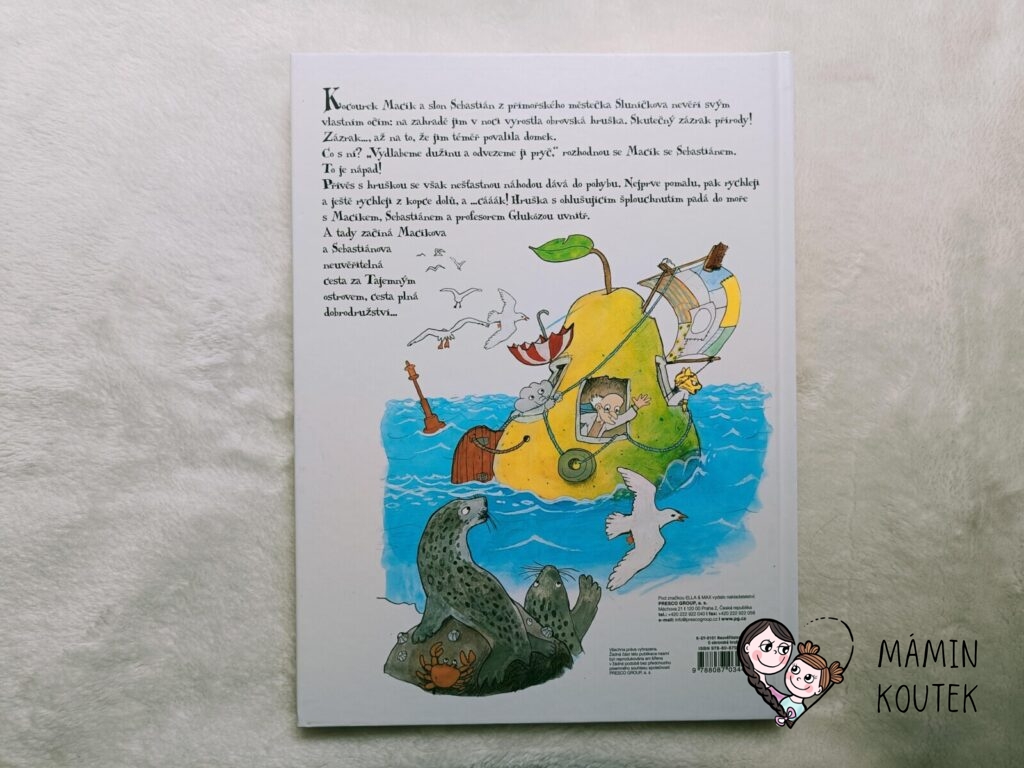 Kocourek Macík a slon Sebastián z přímořského městečka Sluníčkova nevěří svým
vlastním očím: na zahradě jim v noci vyrostla obrovská hruška. Skutečný zázrak přírody!
Zázrak..., až na to, že jim téměř povalila domek.
Co s ní? „Vydlabeme dužinu a odvezeme ji pryč,“ rozhodnou se Macík se Sebastiánem.
To je nápad!
Přívěs s hruškou se však nešťastnou náhodou dává do pohybu. Nejprve pomalu, pak rychleji
a ještě rychleji z kopce dolů, a ...cááák! Hruška s ohlušujícím šplouchnutím padá do moře
s Macíkem, Sebastiánem a profesorem Glukózou uvnitř.
A tady začíná Macíkova
a Sebastiánova
neuvěřitelná
cesta za Tajemným
ostrovem, cesta plná
dobrodružství...
Pod značkou ELLA & MAX vydalo nakladatelství
PRESCO GROUP, a. s.
Máchova 21 I 120 00 Praha 2, Česká republika
e-mail: info@prescogroup.cz I www.pg.cz
Všechna práva vyhrazena.
Žádná část této publikace nesmí
být reprodukována ani šířena
v žádné podobě bez předchozího
písemného souhlasu společnosti
PRESCO GROUP, a. s.
MÁMIN
KOUTEK